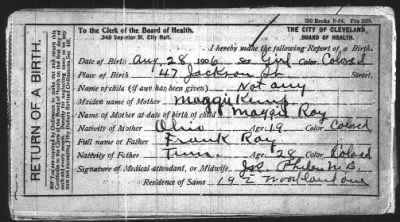 300 Books 9-04. File 3228.
To the Clerk of the Board of Health. THE CITY OF CLEVELAND,
340 Superior St. City Hall. BOARD OF HEALTH.
I hereby make the following Report of a Birth.
Date of Birth Aug 28 1906 Sex Girl Color Colored
Place of Birth 47 Jackson St Street.
Name of child (if any has been given) Not any
Maiden name of Mother Maggie Kemp
Name of Mother at date of birth of child Maggie Ray
Nativity of Mother Ohio Age 19 Color Colored
Full name of Father Frank Ray
Nativity of Father Tenn. Age 28 Color Colored
Signature of Medical attendant, or Midwife M.D.
Residence of Same 192 Woodland ave
RETURN OF A BIRTH.